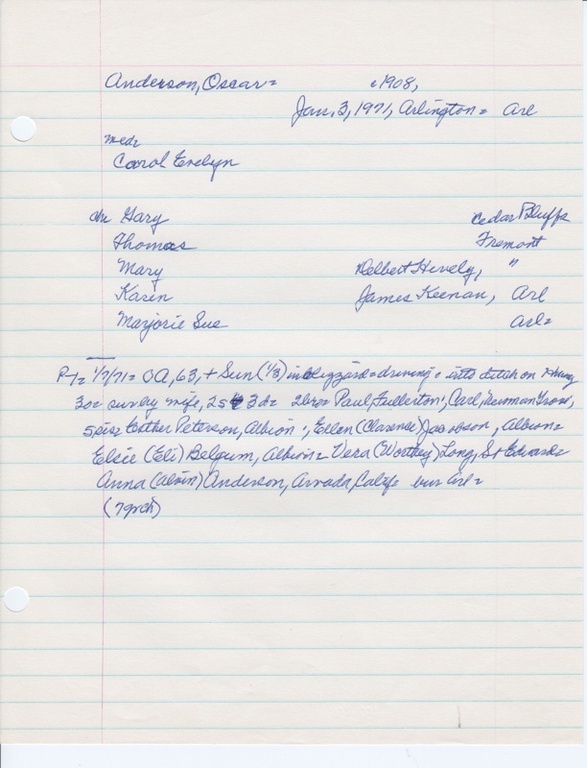 Anderson, Oscar = c1908,
Jan. 3, 1971, Arlington = Arl
med:
Carol Evelyn
ch Gary Cedar Bluffs
Thomas Fremont
Mary Delbert Hively, "
Karen James Keenan, Arl
Marjorie Sue Arl =
PT = 1/7/71 = OA, 63, + Sun (1/3) in blizzard = driving = into ditch on Hiway
30 = surv by wife, 2s 3d = 2bro = Paul, Fullerton; Carl, Newman Grove,
5 sis = Esther Peterson, Albion; Ellen (Clarence) Jacobson, Albion =
Elsie (Eli) Belgum, Albion = Vera (Worthey) Long, St Edward =
Anna (Alvin) Anderson, Arvada, Calif = bur Arl =
(7grch)